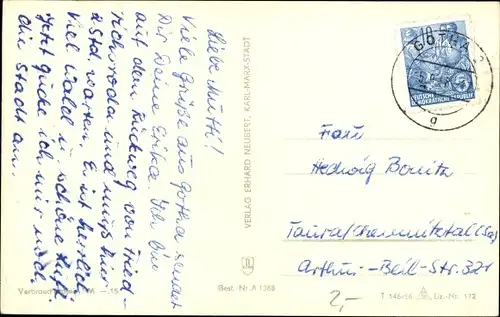 Liebe Mutti!
Viele Grüße aus Gotha sendet
Dir Deine Erika. Ich bin
auf dem Rückweg von Fried-
richroda und muß hier
2 Std. warten. Es ist herrlich
Viel Wald u. schöne Luft.
Jetzt gucke ich mir noch
die Stadt an.
VERLAG ERHARD NEUBERT, KARL-MARX-STADT
GOTHA
DEUTSCHE
DEMOKRATISCHE REPUBLIK
5
Frau
Hedwig
Taura/Chemnitztal (Sa)
Arthur-Beil-Str. 32
2,-
Best.-Nr. A 1388
T 146/56
Liz.-Nr. 172